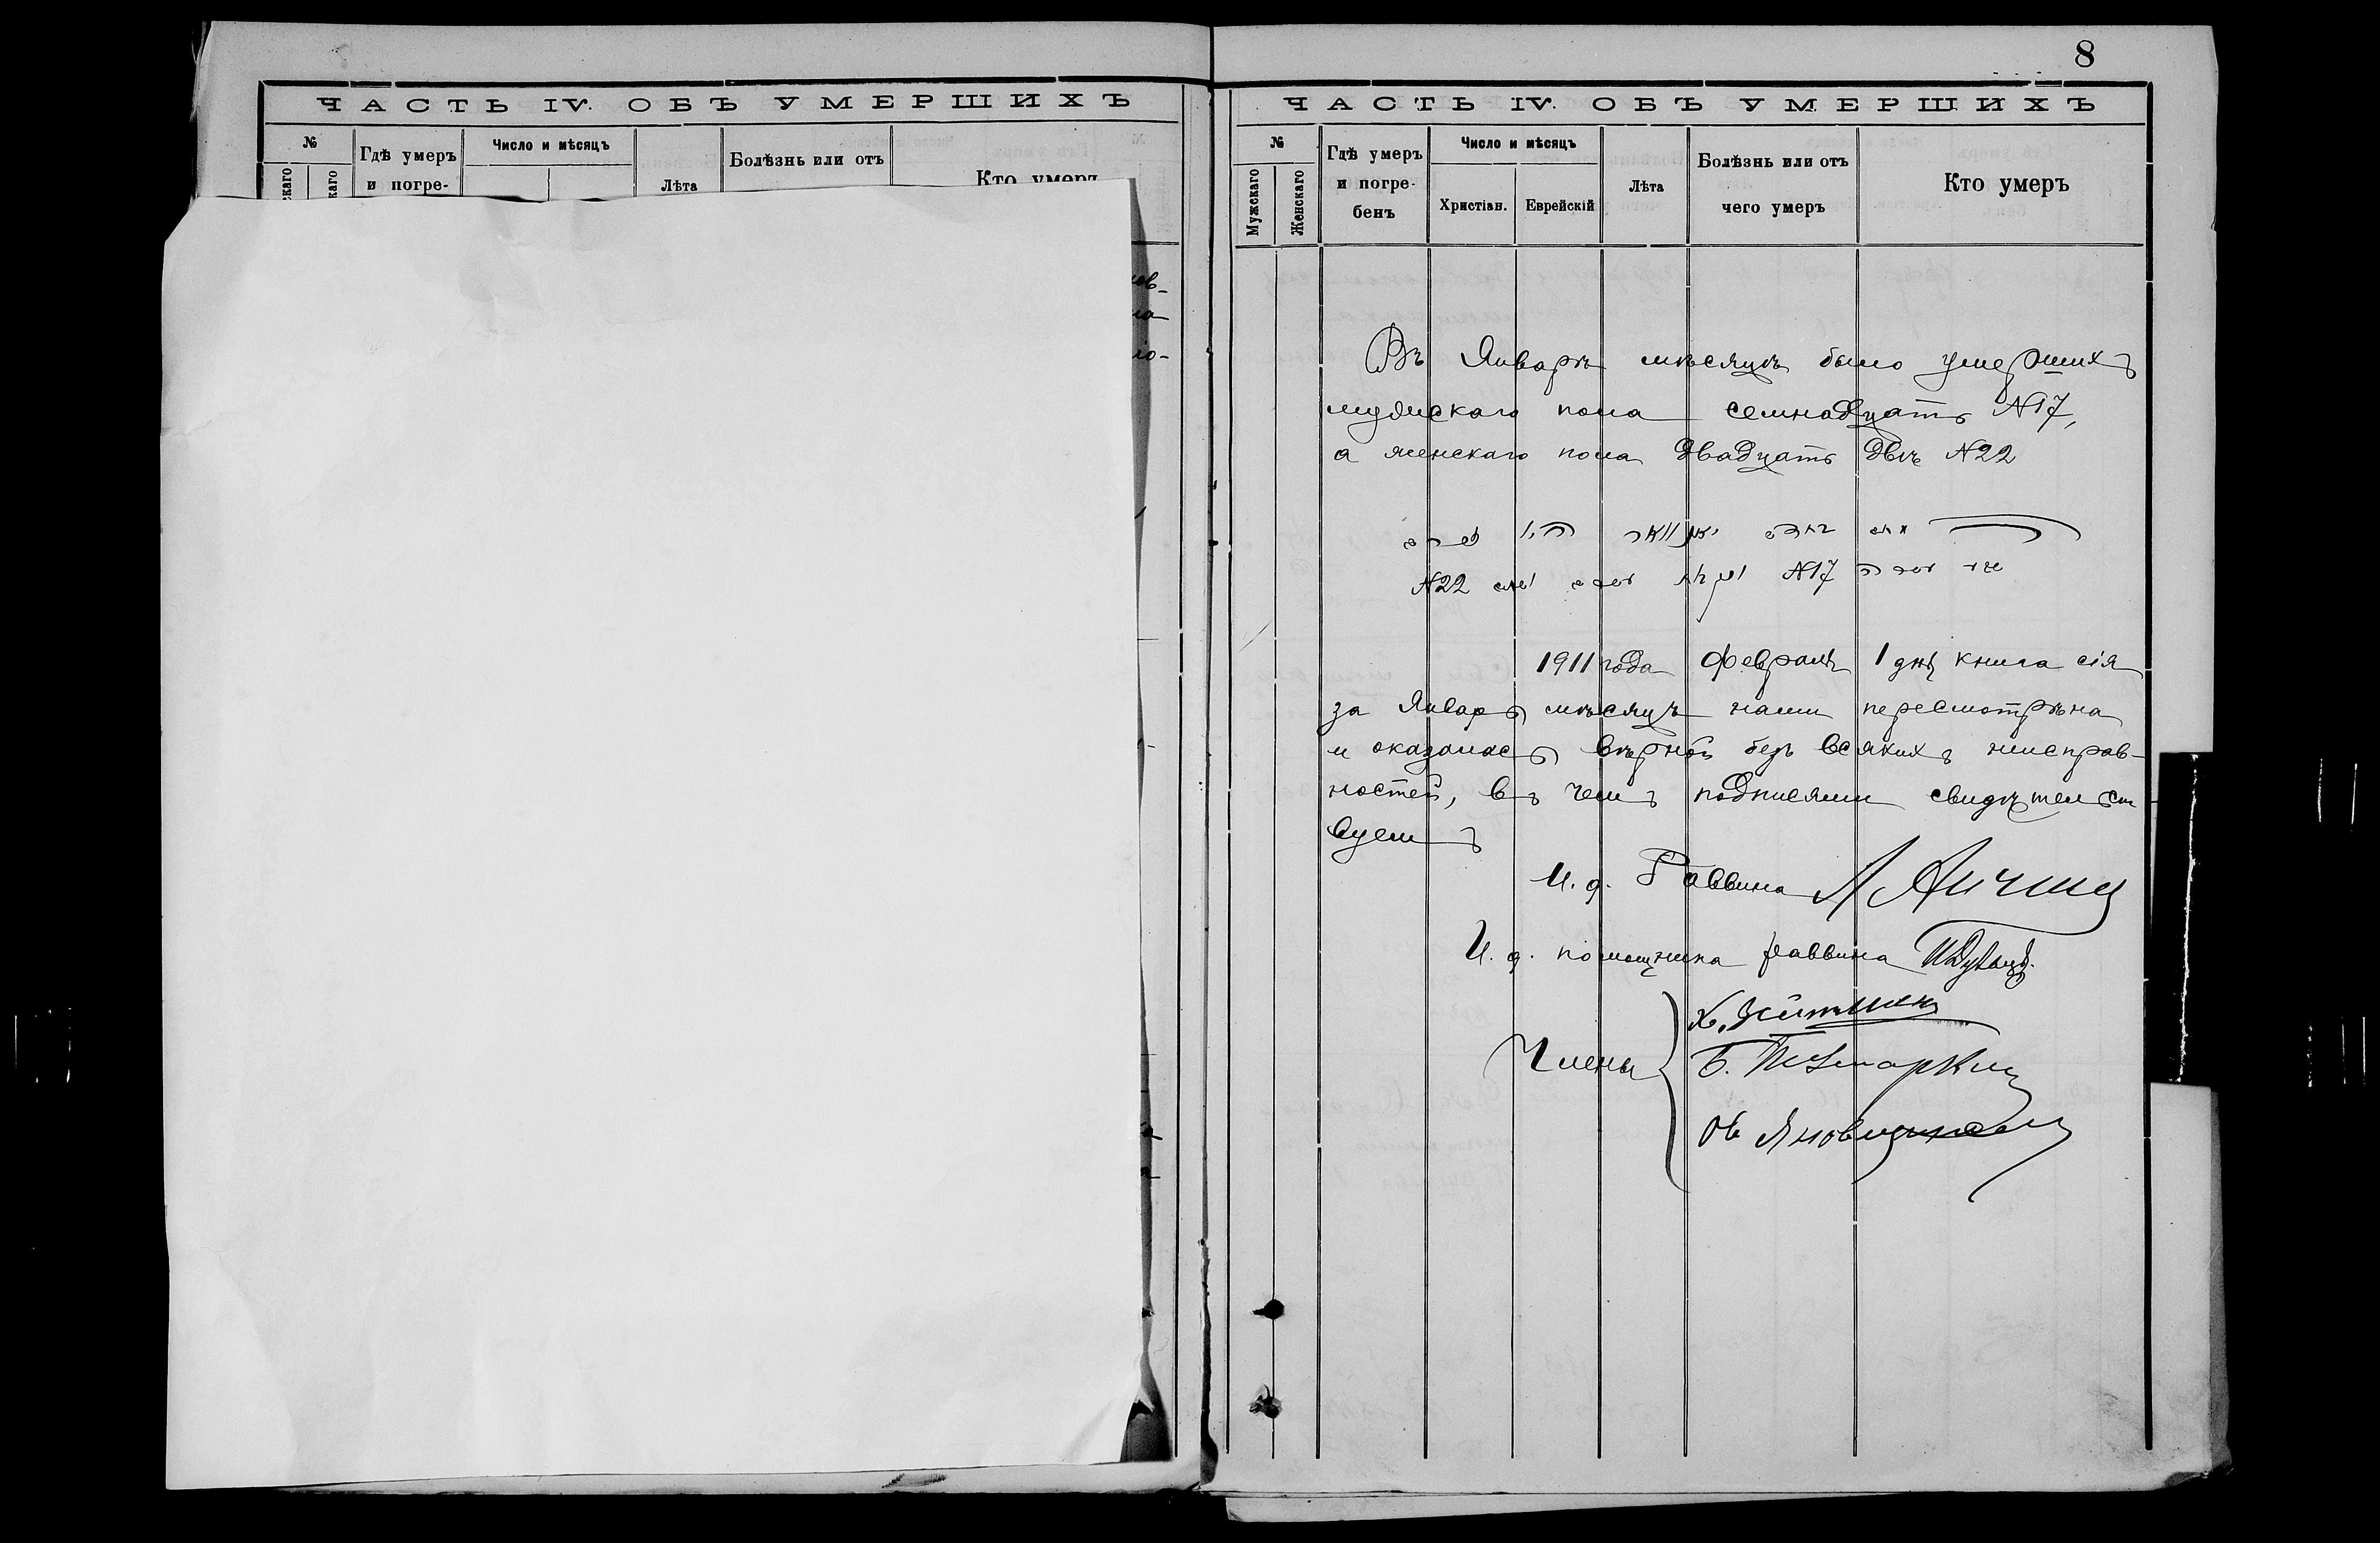 ЧАСТЬ IV. ОБЪ УМЕРШИХЪ
№
Гдѣ умеръ
и погре-
Число и мѣсяцъ
Лѣта
Болѣзнь или отъ
Кто умеръ
8
ЧАСТЬ IV. ОБЪ УМЕРШИХЪ
№
Мужскаго
Женскаго
Гдѣ умеръ
и погре-
бенъ
Число и мѣсяцъ
Христіан.
Еврейскій
Лѣта
Болѣзнь или отъ
чего умеръ
Кто умеръ
Въ Январѣ мѣсяцѣ было умершихъ
мужскаго пола семнадцать №17,
а женскаго пола двадцать двѣ №22
№17
№22
1911 года Февраля 1 дня книга сія
за Январь мѣсяцъ нами пересмотрѣна
и оказалась вѣрной безъ всякихъ неисправ-
ностей, въ чемъ подписями свидѣтельст
вуемъ
И. д. Раввина
И. д. помощника раввина
Члены